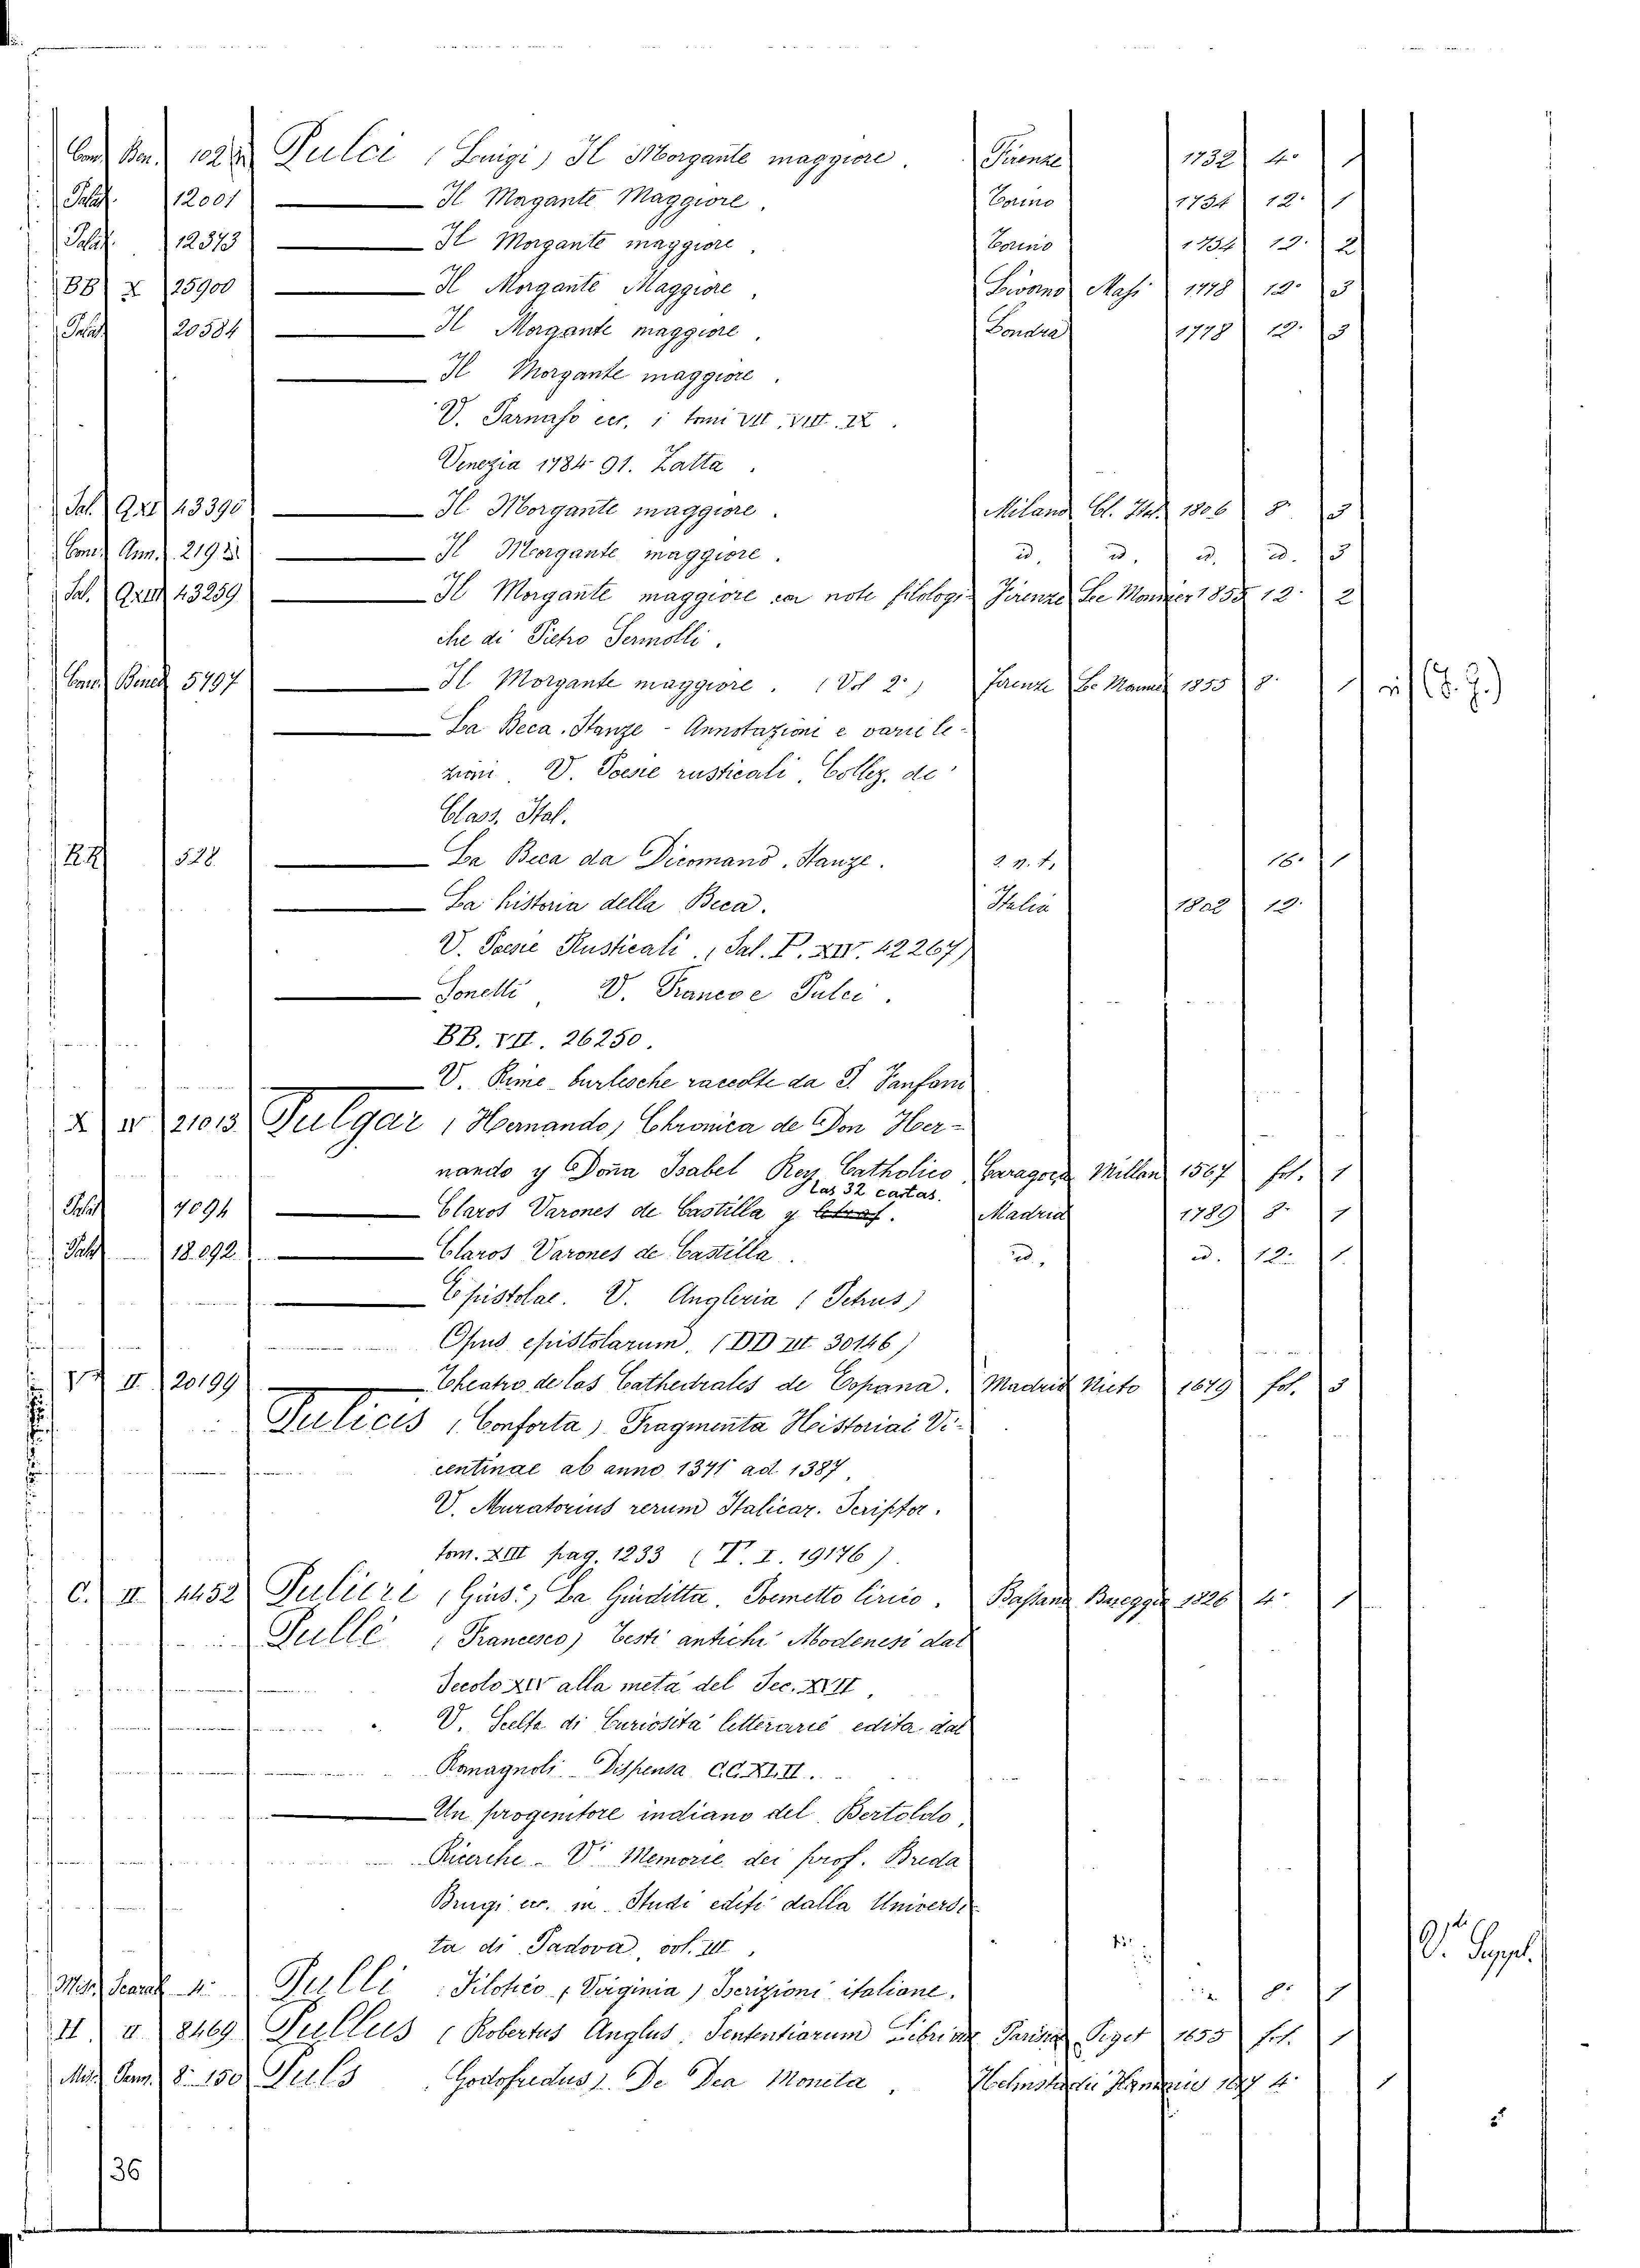 Pulci (Luigi) Il Morgante maggiore. Firenze 1732 4° 1
Palat. 12001 Il Magante Maggiore. Torino 1734 12° 1
Palat. 12373 Il Morgante maggiore. Torino 1734 12. 2
BB X 25900 Il Morgante Maggiore, Livorno Masi 1778 12° 3
Palat. 20584 Il Morgante maggiore. Londra 1778 12. 3
Il Morgante maggiore.
V. Parnaso ecc. i tomi VII, VIII. IX.
Venezia 1784-91. Zatta.
Sal. 43390 Il Morgante maggiore. Milano Cl. Ital. 1806 8° 3
Cons. Ann. 2193 Il Morgante maggiore. id. id. id. id. 3
Sal. 43259 Il Morgante maggiore con note filologi- Firenze Le Monnier 1855 12. 2
che di Pietro Sermolli.
5797 Il Morgante maggiore. (Vol 2°) Firenze Le Monnier 1855 8° 1
La Beca. Stanze - Annotazioni e varie le-
zioni. V. Poesie rusticali. Collez. de'
Class. Ital.
528 La Beca da Dicomano. Stanze. 16° 1
La historia della Beca. Italia 1802 12.
V. Poesie Rusticali. (Sal. P. XIV. 42267)
Sonetti, V. Franco e Pulci.
BB. VII. 26250.
V. Rime burlesche raccolte da P. Fanfani
X IV 21013 Pulgar (Hernando) Chronica de Don Her-
nando y Dona Isabel Rey Catholico Caragoza Millan 1567 fol. 1
las 32 cartas.
Palat 7094 Claros Varones de Castilla y letras. Madrid 1789 8° 1
Palat 18.092 Claros Varones de Castilla. id. id. 12. 1
Epistolae. V. Angleria (Petrus)
Opus epistolarum. (DD III 30146)
II 20199 Theatro de las Cathedrales de Espana. Madrid Nieto 1679 fol. 3
Pulicis (Conforta) Fragmenta Historiae Vi-
centinae ab anno 1371 ad 1387.
V. Muratorius rerum Italicar. Scriptor.
tom. XIII pag. 1233 (T. I. 19176).
C. II 4452 Pulieri (Gius°) La Giuditta. Poemetto lirico. Bassano Baseggio 1826 4° 1
Pullé (Francesco) Testi antichi Modenesi dal
Secolo XIV alla metà del Sec. XVII,
V. Scelta di Curiosità letterarie edita dal
Romagnoli. Dispensa CCXLII.
Un progenitore indiano del Bertoldo,
Ricerche. V. Memorie dei prof. Breda
Brugi ecc. in Studi editi dalla Universi
ta di Padova, vol. III.
V. Suppl.
Misc. 4. Pulli Pilotico (Virginia) Iscrizioni italiane. 8° 1
II II 8469 Pullus (Robertus Anglus. Sententiarum Libri Parisiis Piget 1655 fol. 1
Misc. 8. 150 Puls (Godofredus). De Dea Moneta. 4° 1
5
36